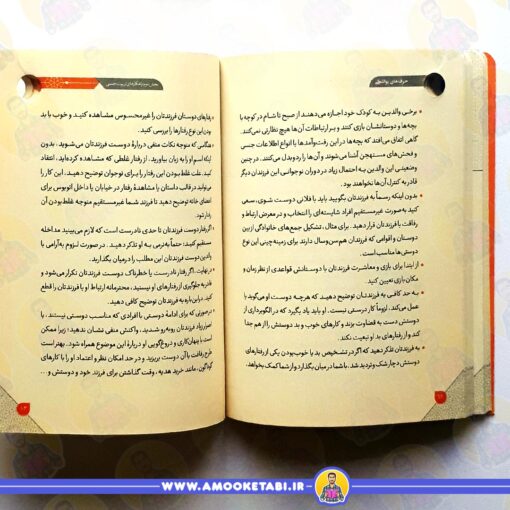 حرف‌های یواشکی
برخی والدین به کودک خود اجازه می‌دهند از صبح تا شام در کوچه با
بچه‌ها و دوستانشان بازی کنند و بر ارتباطات آن‌ها هیچ نظارتی نمی‌کنند.
گاهی اتفاق می‌افتد که بچه‌ها در این رفت‌وآمدها با انواع اطلاعات جنسی
و فحش‌های مستهجن آشنا می‌شوند و آن‌ها را ردوبدل می‌کنند. در چنین
وضعیتی این والدین به احتمال زیاد در دوران نوجوانی این فرزندان دیگر
قادر به کنترل آن‌ها نخواهند بود.
بدون اینکه رسماً به فرزندتان بگویید باید با فلانی دوست شوی، سعی
کنید به صورت غیرمستقیم افراد شایسته‌ای را انتخاب و در معرض ارتباط و
رفاقت با فرزندتان قرار دهید. برای مثال، تشکیل جمع‌های خانوادگی از بین
دوستان و اقوامی که فرزندان هم سن‌وسال دارند برای زمینه‌چینی این نوع
دوستی‌ها مناسب است.
از ابتدا برای بازی و معاشرت فرزندتان با دوستانش قواعدی از نظر زمان و
مکان بازی تعیین کنید.
به حد کافی به فرزندتان توضیح دهید که هرچه دوست او می‌گوید یا
عمل می‌کند، لزوماً کار درستی نیست. او باید یاد بگیرد که در الگوبرداری از
دوستش دست به قضاوت بزند و کارهای خوب و بد دوستش را از هم جدا
کند و از رفتارهای بد او تبعیت نکند.
به فرزندتان تذکر دهید که اگر در تشخیص بد یا خوب بودن یکی از رفتارهای
دوستش دچار شک و تردید شد، با شما در میان بگذارد و از شما کمک بخواهد.
رفتارهای دوستان فرزندتان را غیرمحسوس مشاهده کنید و خوب یا بد
بودن این نوع رفتارها را بررسی کنید.
هنگامی که متوجه نکات منفی دربارهٔ دوست فرزندتان می‌شوید، بدون
اینکه اسم او را به زبان بیاورید، از رفتار غلطی که مشاهده کرده‌اید، انتقاد
کنید. علت غلط بودن این رفتار را برای نوجوان توضیح دهید. این کار را
می‌توانید در قالب داستان یا مشاهدهٔ رفتار در خیابان یا داخل اتوبوس برای
اعضای خانه توضیح دهید تا فرزند شما غیرمستقیم متوجه غلط بودن آن
رفتار شود.
اگر رفتار دوست فرزندتان تا حدی نادرست است که لازم می‌بینید مداخله
مستقیم کنید، حتماً به نرمی به او تذکر دهید. در صورت لزوم به آرامی با
والدین دوست فرزندتان این مطلب را در میان بگذارید.
در نهایت، اگر رفتار نادرست یا خطرناک دوست فرزندتان تکرار می‌شود و
قادر به جلوگیری از رفتارهای او نیستید، محترمانه ارتباط او با فرزندتان را قطع
کنید. در این باره به فرزندتان توضیح کافی دهید.
در صورتی که برای ادامهٔ دوستی با افرادی که مناسب دوستی نیستند، با
اصرار زیاد فرزندتان روبه‌رو شدید، واکنش منفی نشان ندهید؛ زیرا ممکن
است با پنهان‌کاری و دروغ‌گویی او از این موضوع همراه شود. بهتر است
طرح رفاقت با آن دوست بریزید و در حد امکان نظر و اعتماد او را با کارهای
گوناگون، مانند خرید هدیه، وقت گذاشتن برای فرزند خود و دوستش و ...
WWW.AMOOKETABI.IR